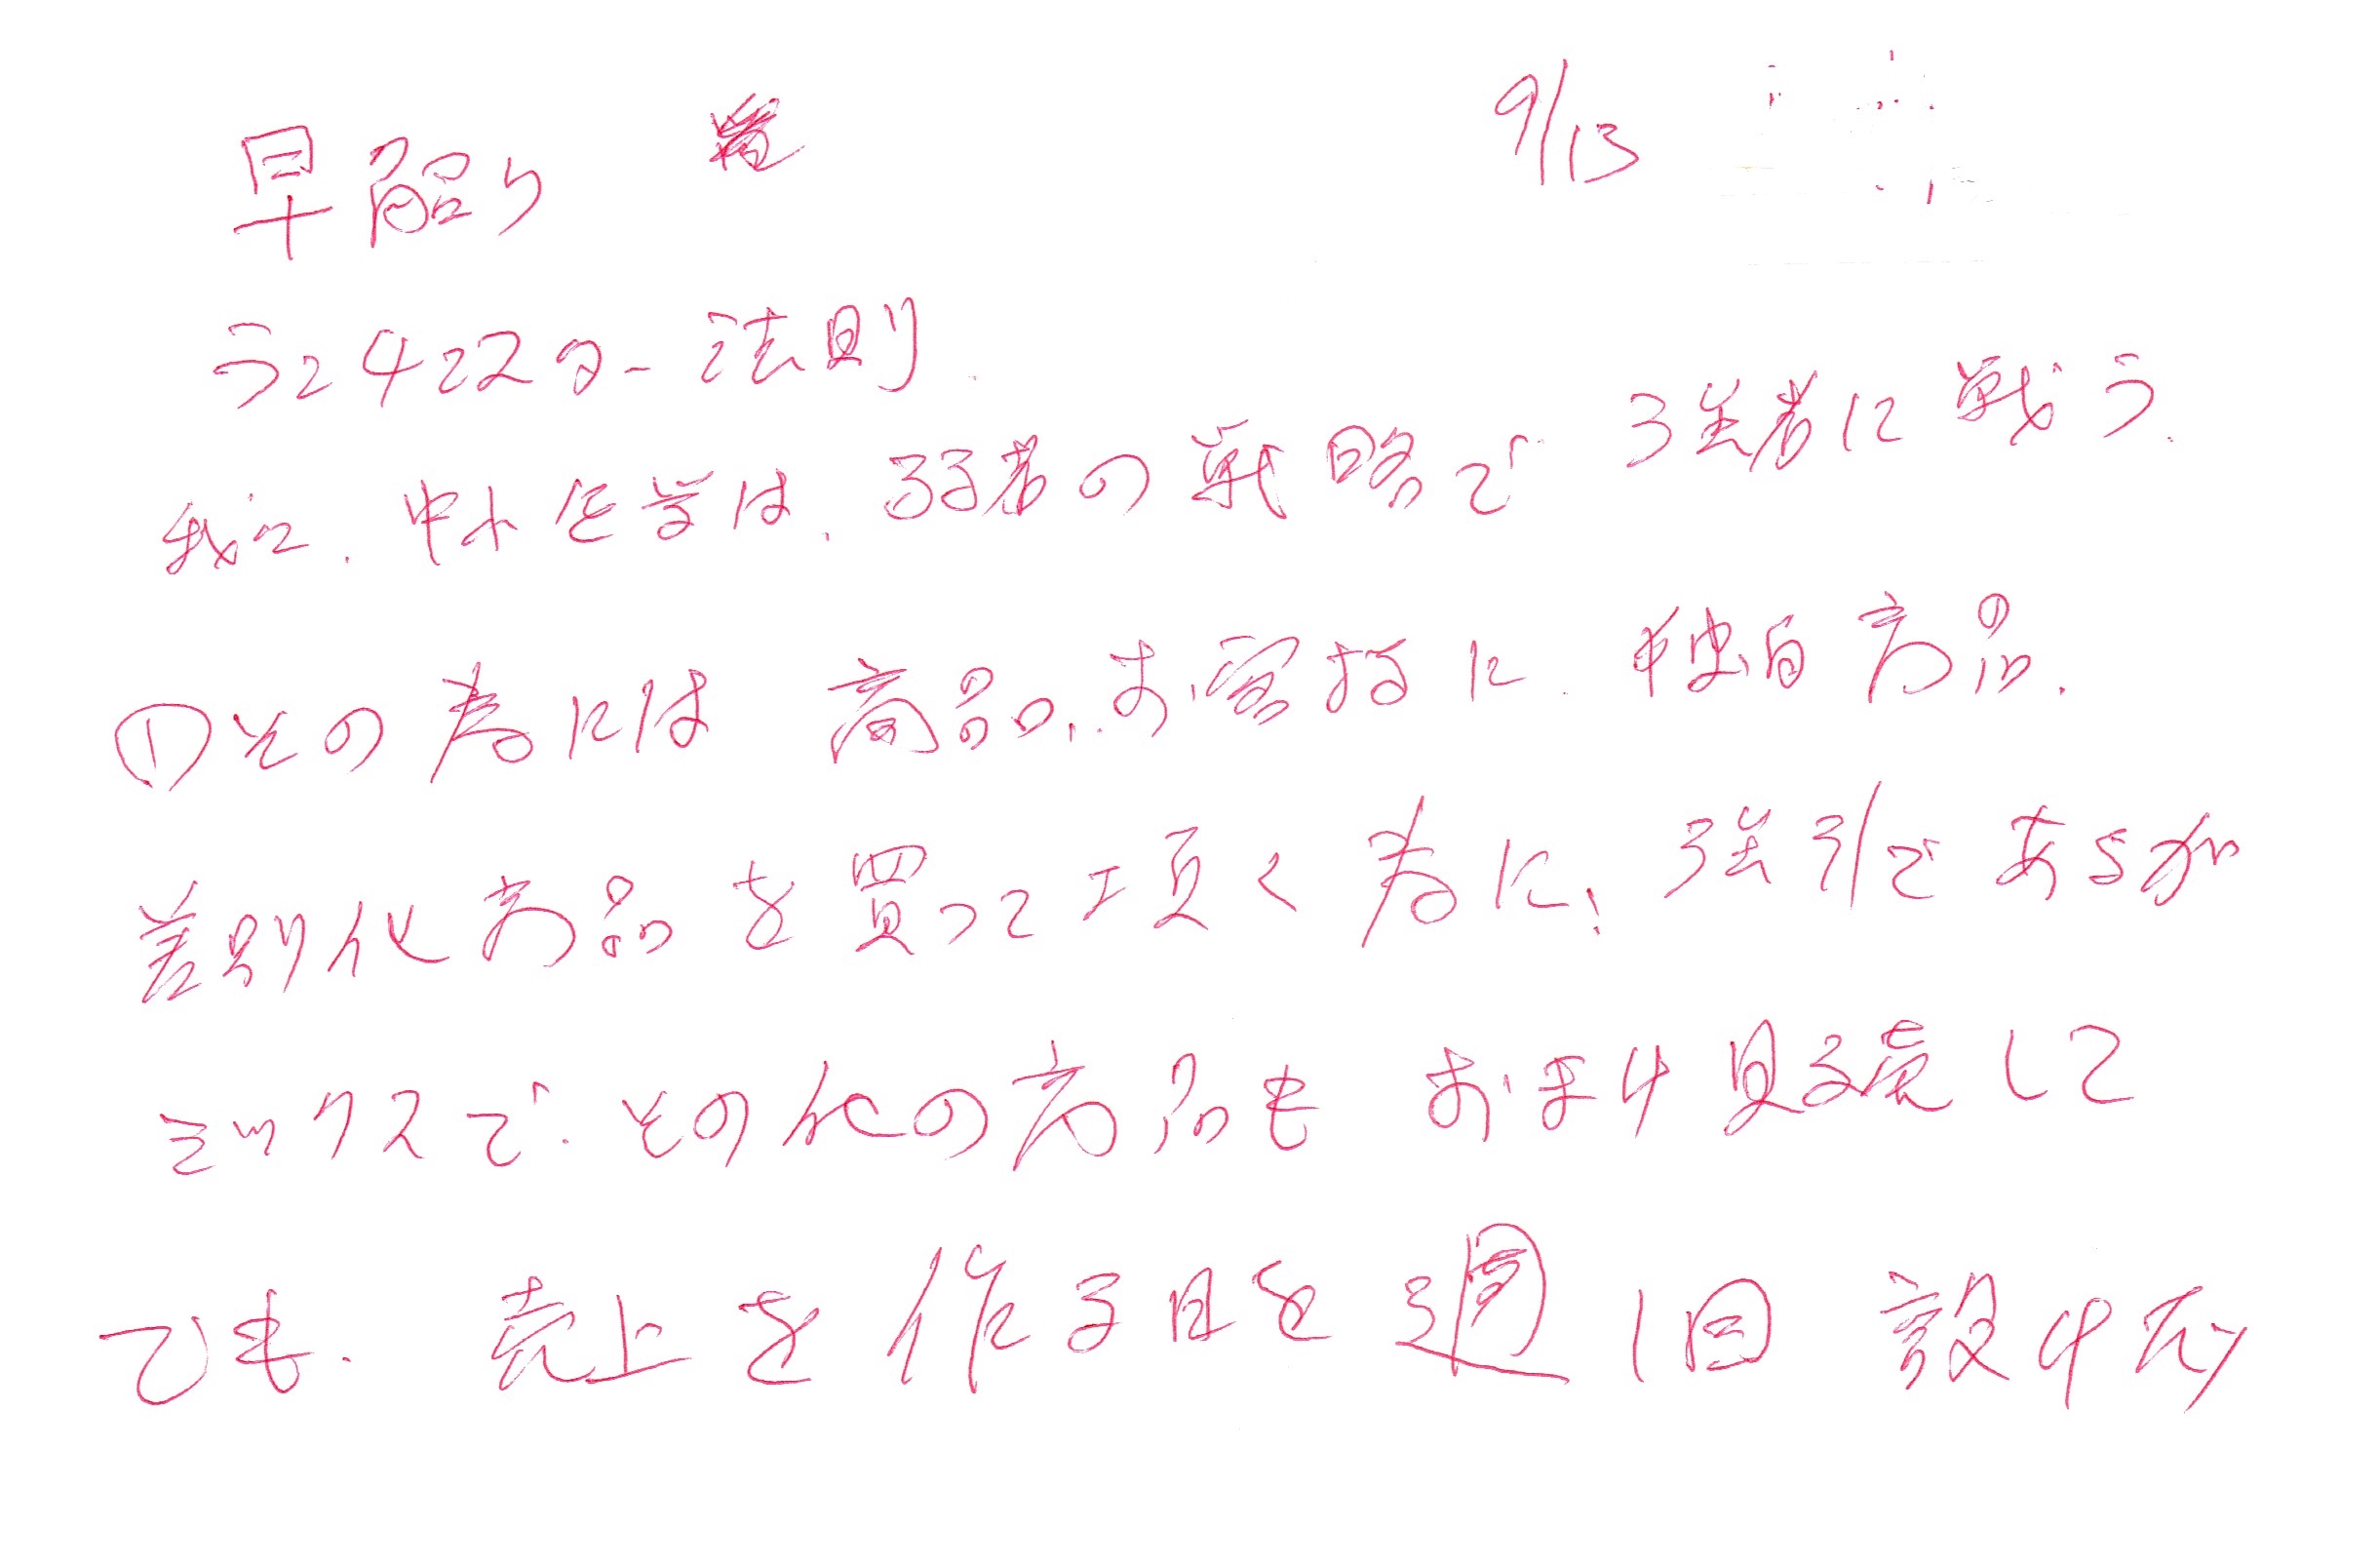 早解り 9/13
ランチェスター法則.
我々.中小企業は、弱者の戦略で 強者に戦う.
①その為には 商品.お客様に.独自商品.
差別化商品を買って頂く為に、強引であるが
ミックスで.その他の商品も お手中見る流して
でも.売上を作る日を週1回設け